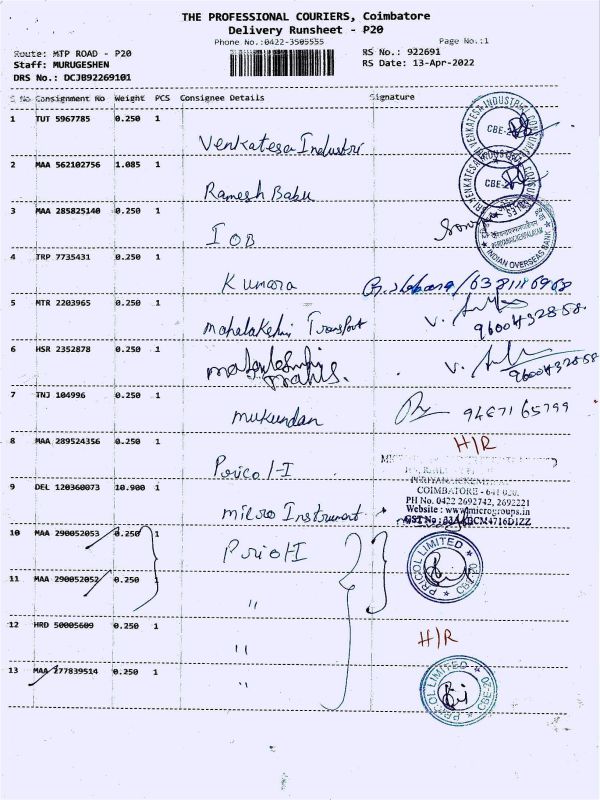 THE PROFESSIONAL COURIERS, Coimbatore
Delivery Runsheet - P20
Phone No.:0422-3505555
Page No.:1
Route: MTP ROAD - P20
RS No.: 922691
Staff: MURUGESHEN
RS Date: 13-Apr-2022
DRS No.: DCJB92269101
S No Consignment No Weight PCS Consignee Details Signature
1 TUT 5967785 0.250 1
Venkatesa Industri
CBE-2
2 MAA 562102756 1.085 1
Ramesh Babu
CBE-2
3 MAA 285825140 0.250 1
IOB
INDIAN OVERSEAS BANK
4 TRP 7735431 0.250 1
Kumara
5 MTR 2203965 0.250 1
Mahalakshmi Transport
V.
9600432858
6 HSR 2352878 0.250 1
V.
9600432858
7 TNJ 104996 0.250 1
Mukundan
8 MAA 289524356 0.250 1
H/R
9 DEL 120360073 10.900 1
Micro Instrument
COIMBATORE - 641 020.
PH No. 0422 2692742, 2692221
Website : www.microgroups.in
10 MAA 290052053 0.250 1
PRICOL LIMITED
CBE-20
11 MAA 290052052 0.250 1
"
12 HRD 50005609 0.250 1
"
H/R
13 MAA 277839514 0.250 1
"
PRICOL LIMITED
CBE-20